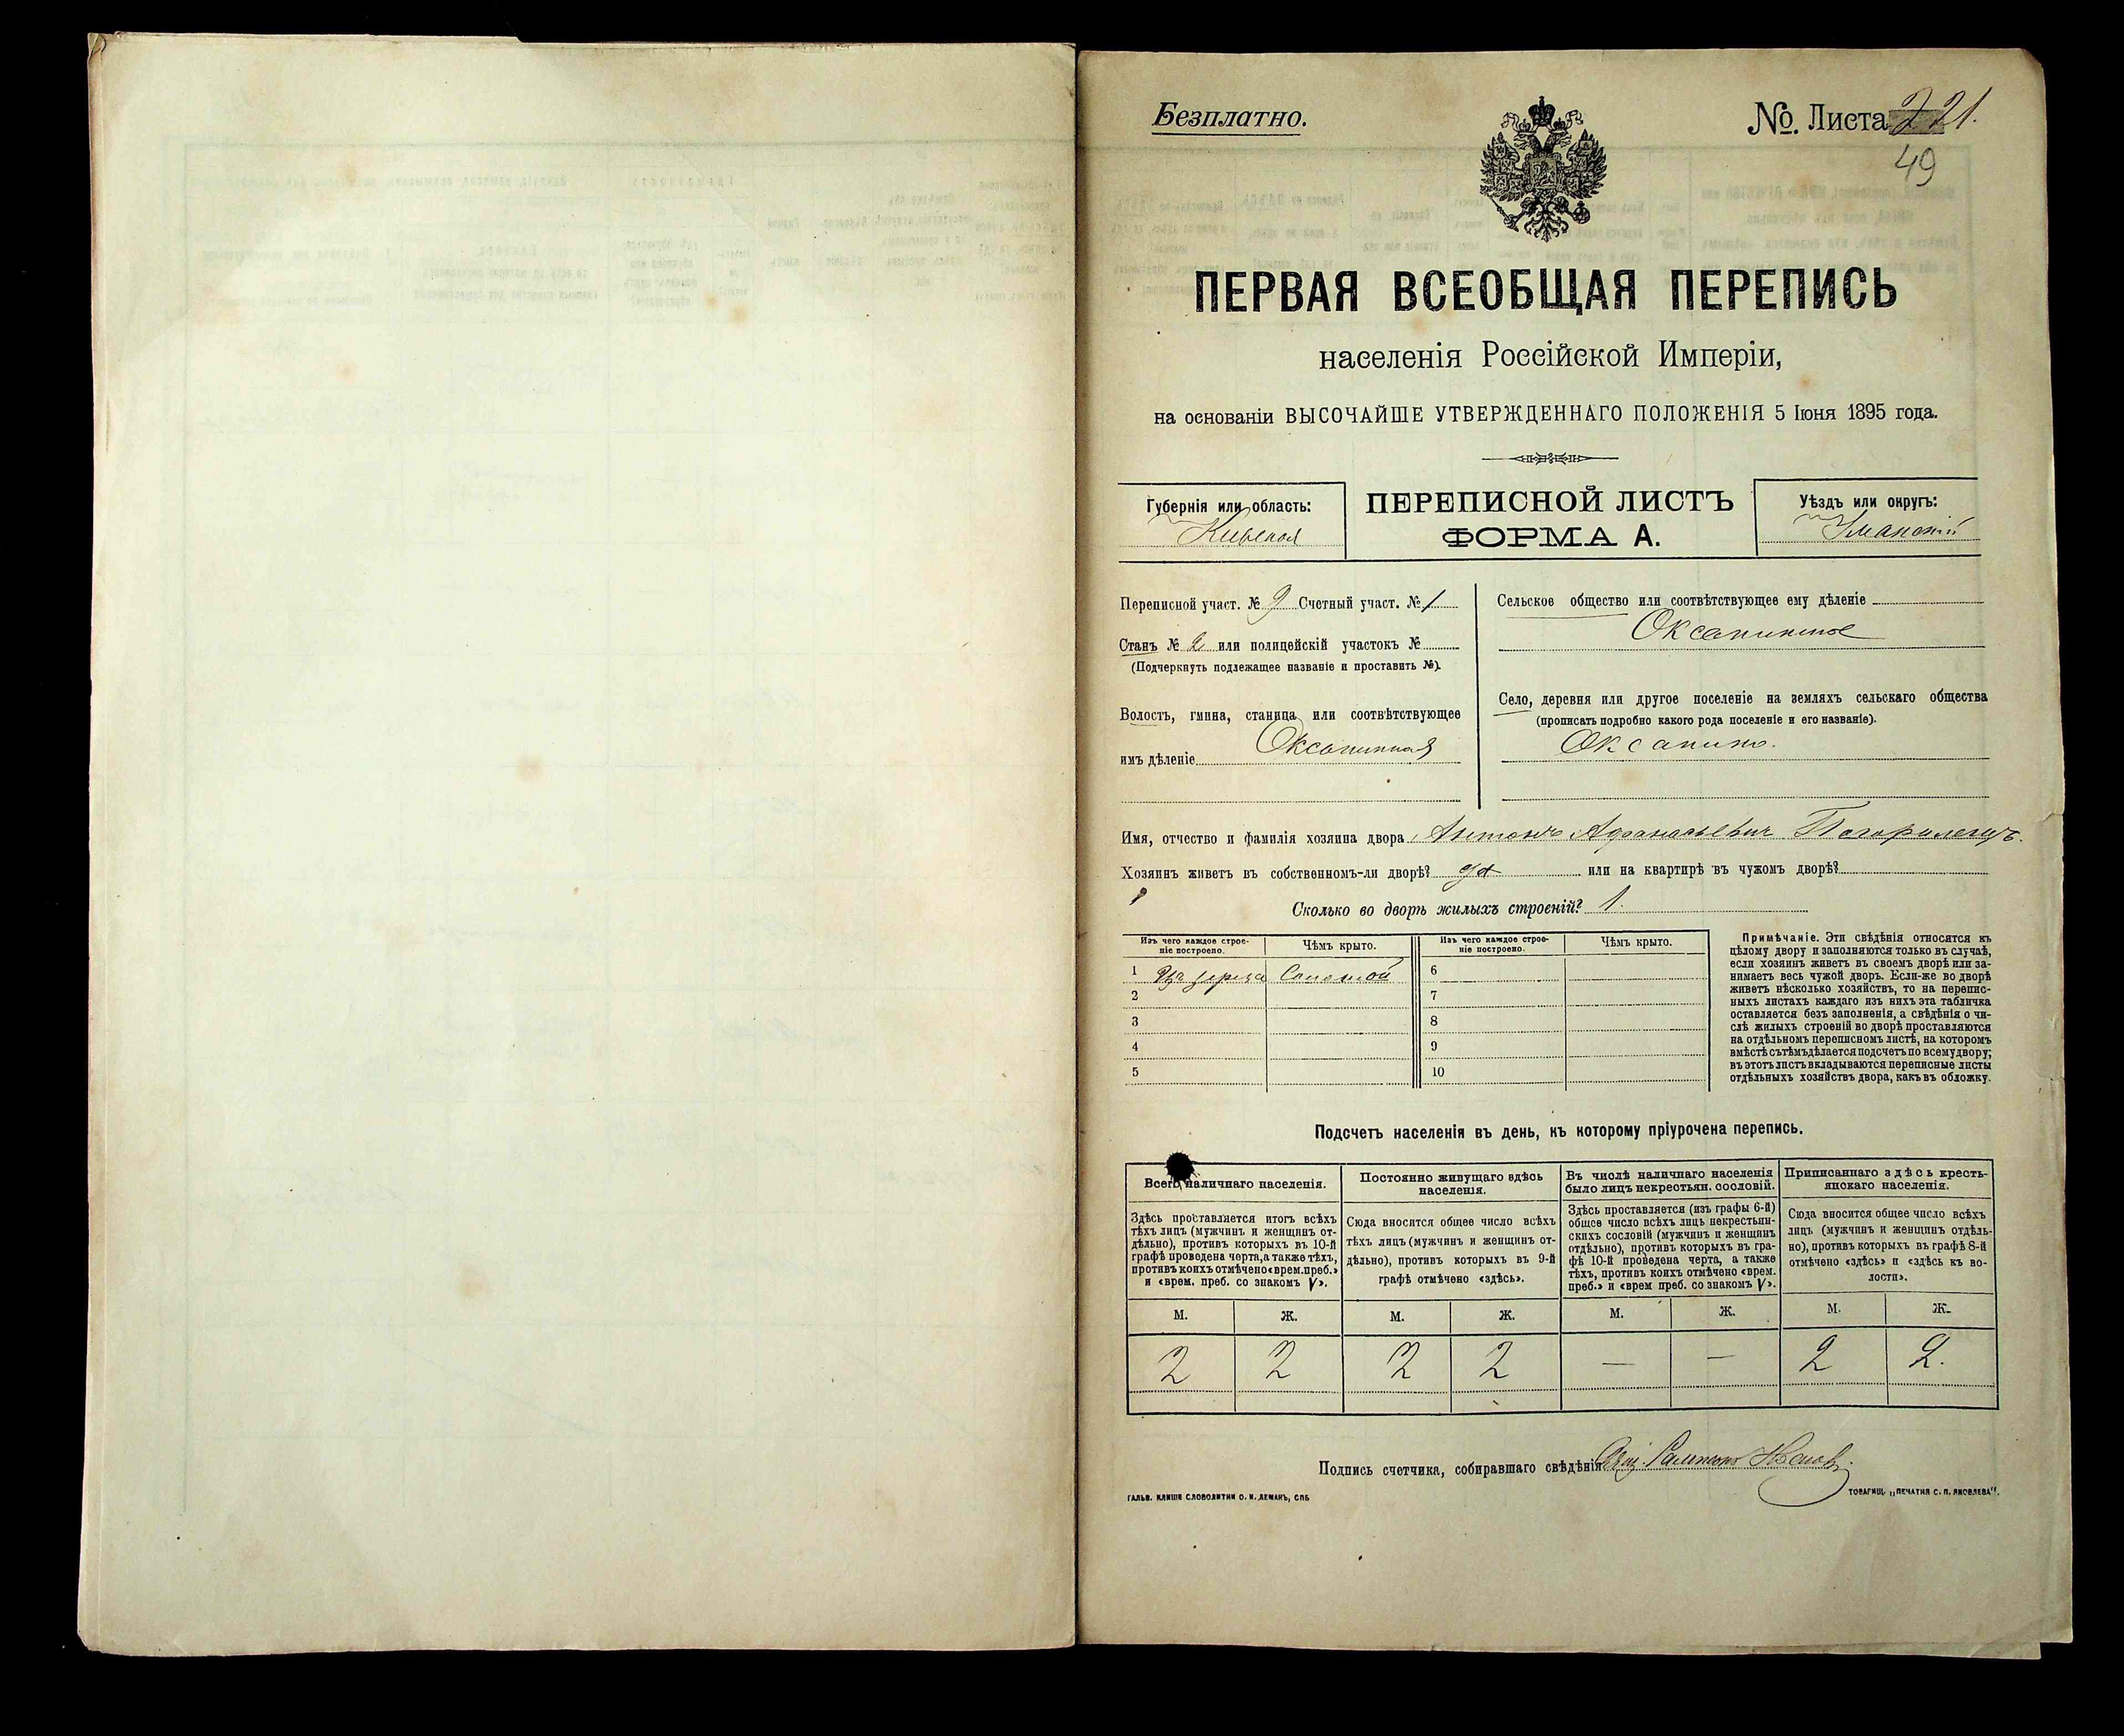 Безплатно.
№. Листа 221.
49
ПЕРВАЯ ВСЕОБЩАЯ ПЕРЕПИСЬ
населенія Россійской Имперіи,
на основаніи ВЫСОЧАЙШЕ УТВЕРЖДЕННАГО ПОЛОЖЕНІЯ 5 Іюня 1895 года.
Губернія или область:
Кіевская
ПЕРЕПИСНОЙ ЛИСТЪ
ФОРМА А.
Уѣздъ или округъ:
Уманскій
Переписной участ. № 9 Счетный участ. № 1
Станъ № 2 или полицейскій участокъ №
(Подчеркнуть подлежащее названіе и проставить №).
Волость, гмина, станица или соотвѣтствующее
имъ дѣленіе Оксанинская
Сельское общество или соотвѣтствующее ему дѣленіе
Оксанинское
Село, деревня или другое поселеніе на земляхъ сельскаго общества
(прописать подробно какого рода поселеніе и его названіе).
Оксанино.
Имя, отчество и фамилія хозяина двора Антонъ Афанасьевич
Хозяинъ живетъ въ собственномъ-ли дворѣ? да или на квартирѣ въ чужомъ дворѣ?
Сколько во дворѣ жилыхъ строеній? 1.
Изъ чего каждое строе-
ніе построено.
Чѣмъ крыто.
Изъ чего каждое строе-
ніе построено.
Чѣмъ крыто.
1 Изъ дерева Соломой
2
3
4
5
6
7
8
9
10
Примѣчаніе. Эти свѣдѣнія относятся къ
цѣлому двору и заполняются только въ случаѣ,
если хозяинъ живетъ въ своемъ дворѣ или за-
нимаетъ весь чужой дворъ. Если-же во дворѣ
живетъ нѣсколько хозяйствъ, то на перепис-
ныхъ листахъ каждаго изъ нихъ эта табличка
оставляется безъ заполненія, а свѣдѣнія о чи-
слѣ жилыхъ строеній во дворѣ проставляются
на отдѣльномъ переписномъ листѣ, на которомъ
вмѣстѣ съ тѣмъ дѣлается подсчетъ по всему двору;
въ этотъ листъ вкладываются переписные листы
отдѣльныхъ хозяйствъ двора, какъ въ обложку.
Подсчетъ населенія въ день, къ которому пріурочена перепись.
Всего наличнаго населенія.
Здѣсь проставляется итогъ всѣхъ
тѣхъ лицъ (мужчинъ и женщинъ от-
дѣльно), противъ которыхъ въ 10-й
графѣ проведена черта, а также тѣхъ,
противъ коихъ отмѣчено «врем. преб.»
и «врем. преб. со знакомъ V».
Постоянно живущаго здѣсь
населенія.
Сюда вносится общее число всѣхъ
тѣхъ лицъ (мужчинъ и женщинъ от-
дѣльно), противъ которыхъ въ 9-й
графѣ отмѣчено «здѣсь».
Въ числѣ наличнаго населенія
было лицъ некрестьян. сословій.
Здѣсь проставляется (изъ графы 6-й)
общее число всѣхъ лицъ некрестьян-
скихъ сословій (мужчинъ и женщинъ
отдѣльно), противъ которыхъ въ гра-
фѣ 10-й проведена черта, а также
тѣхъ, противъ коихъ отмѣчено «врем.
преб.» и «врем преб. со знакомъ V».
Приписаннаго здѣсь кресть-
янскаго населенія.
Сюда вносится общее число всѣхъ
лицъ (мужчинъ и женщинъ отдѣль-
но), противъ которыхъ въ графѣ 8-й
отмѣчено «здѣсь» и «здѣсь къ во-
лости».
М. Ж. М. Ж. М. Ж. М. Ж.
2 2 2 2 — — 2 2.
Подпись счетчика, собиравшаго свѣдѣнія
ГАЛЬВ. КЛИШЕ СЛОВОЛИТНИ О. И. ЛЕМАНЪ, СПБ
ТОВАРИЩ. „ПЕЧАТНЯ С. П. ЯКОВЛЕВА".